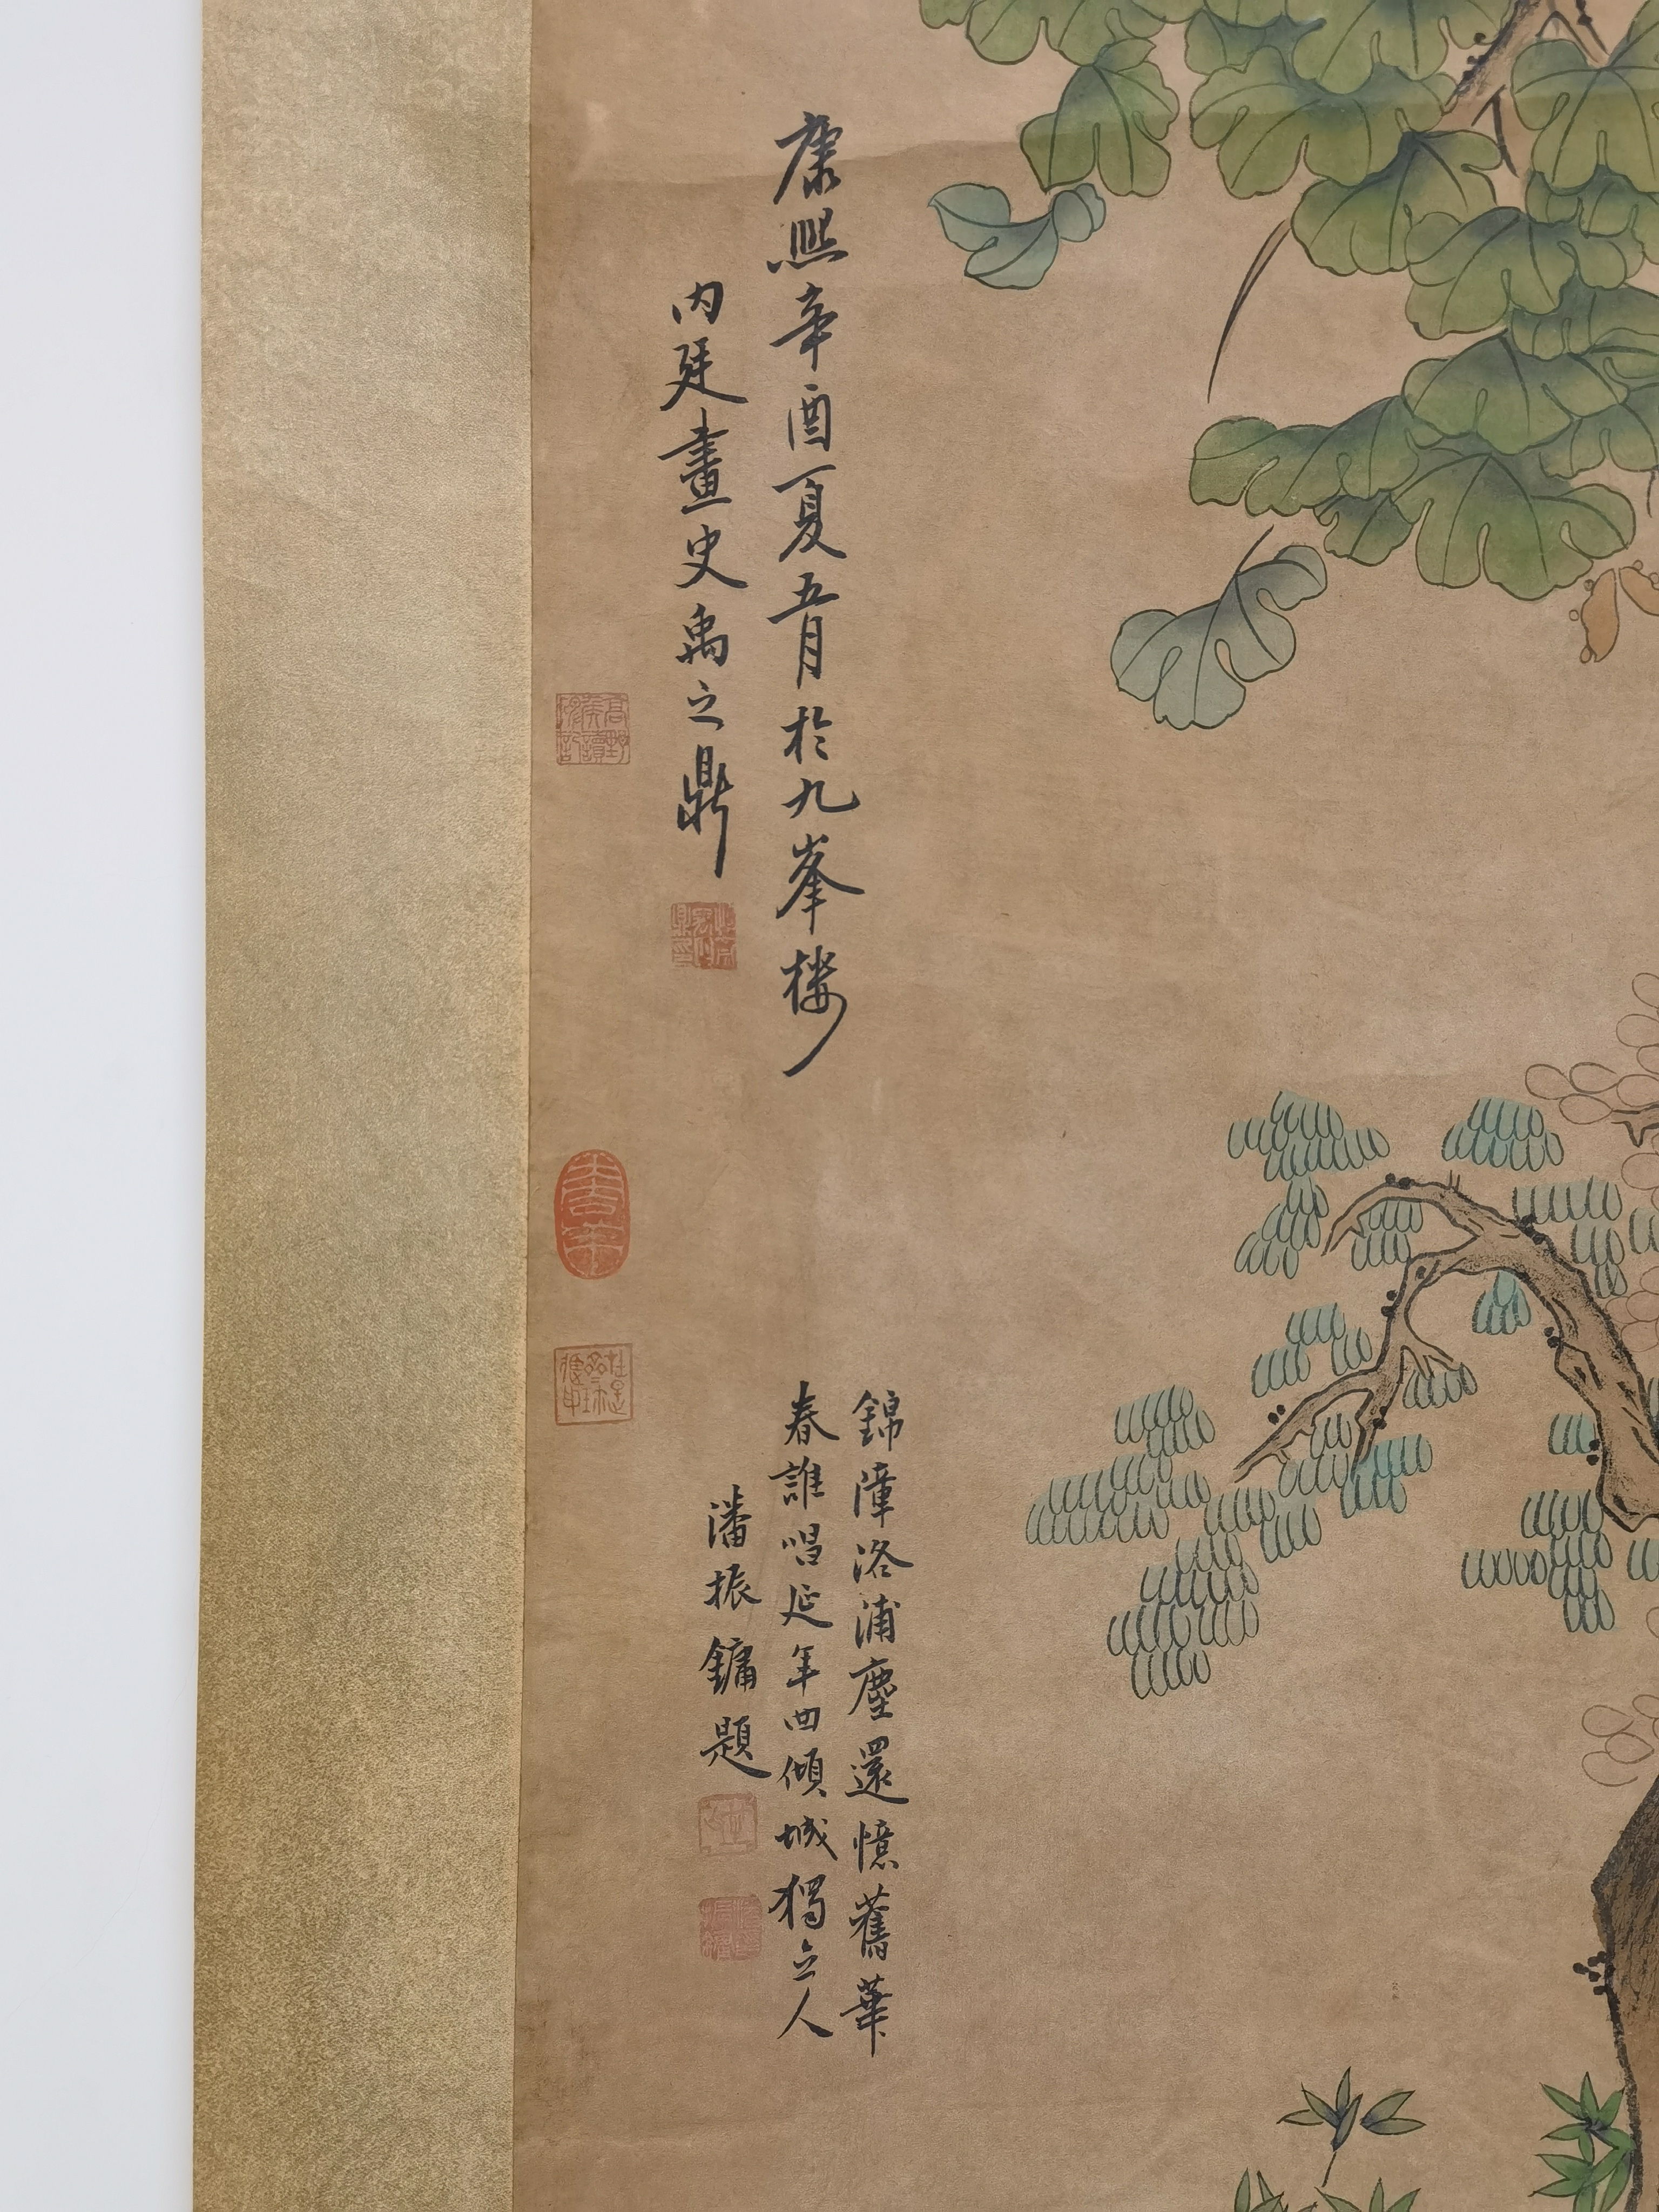 康熙辛酉夏五月於九峯樓
内廷畫史禹之鼎
錦障洛浦塵還憶舊華
春誰唱延年曲傾城獨立人
潘振鏞題